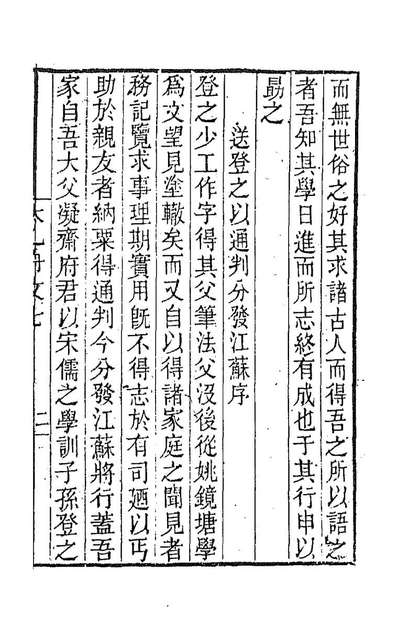 而無世俗之好其求諸古人而得吾之所以語之
者吾知其學日進而所志終有成也于其行申以
勗之
送登之以通判分發江蘇序
登之少工作字得其父筆法父沒後從姚鏡塘學
為文望見塗轍矣而又自以得諸家庭之聞見者
務記覽求事理期實用旣不得志於有司廼以丐
助於親友者納粟得通判今分發江蘇將行蓋吾
家自吾大父凝齋府君以宋儒之學訓子孫登之
文七
二